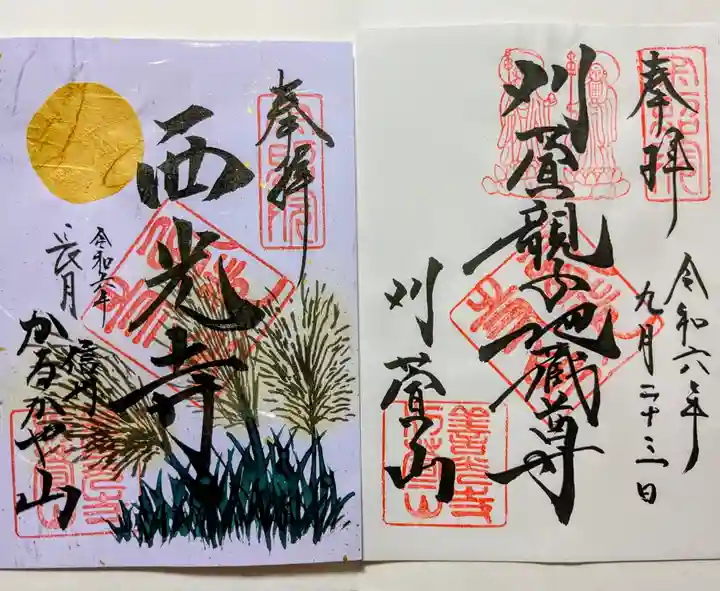 奉拝
西光寺
令和六年
長月
信州
かるかや山
奉拝
刈萱親子地蔵尊
刈萱山
令和六年
九月二十三日